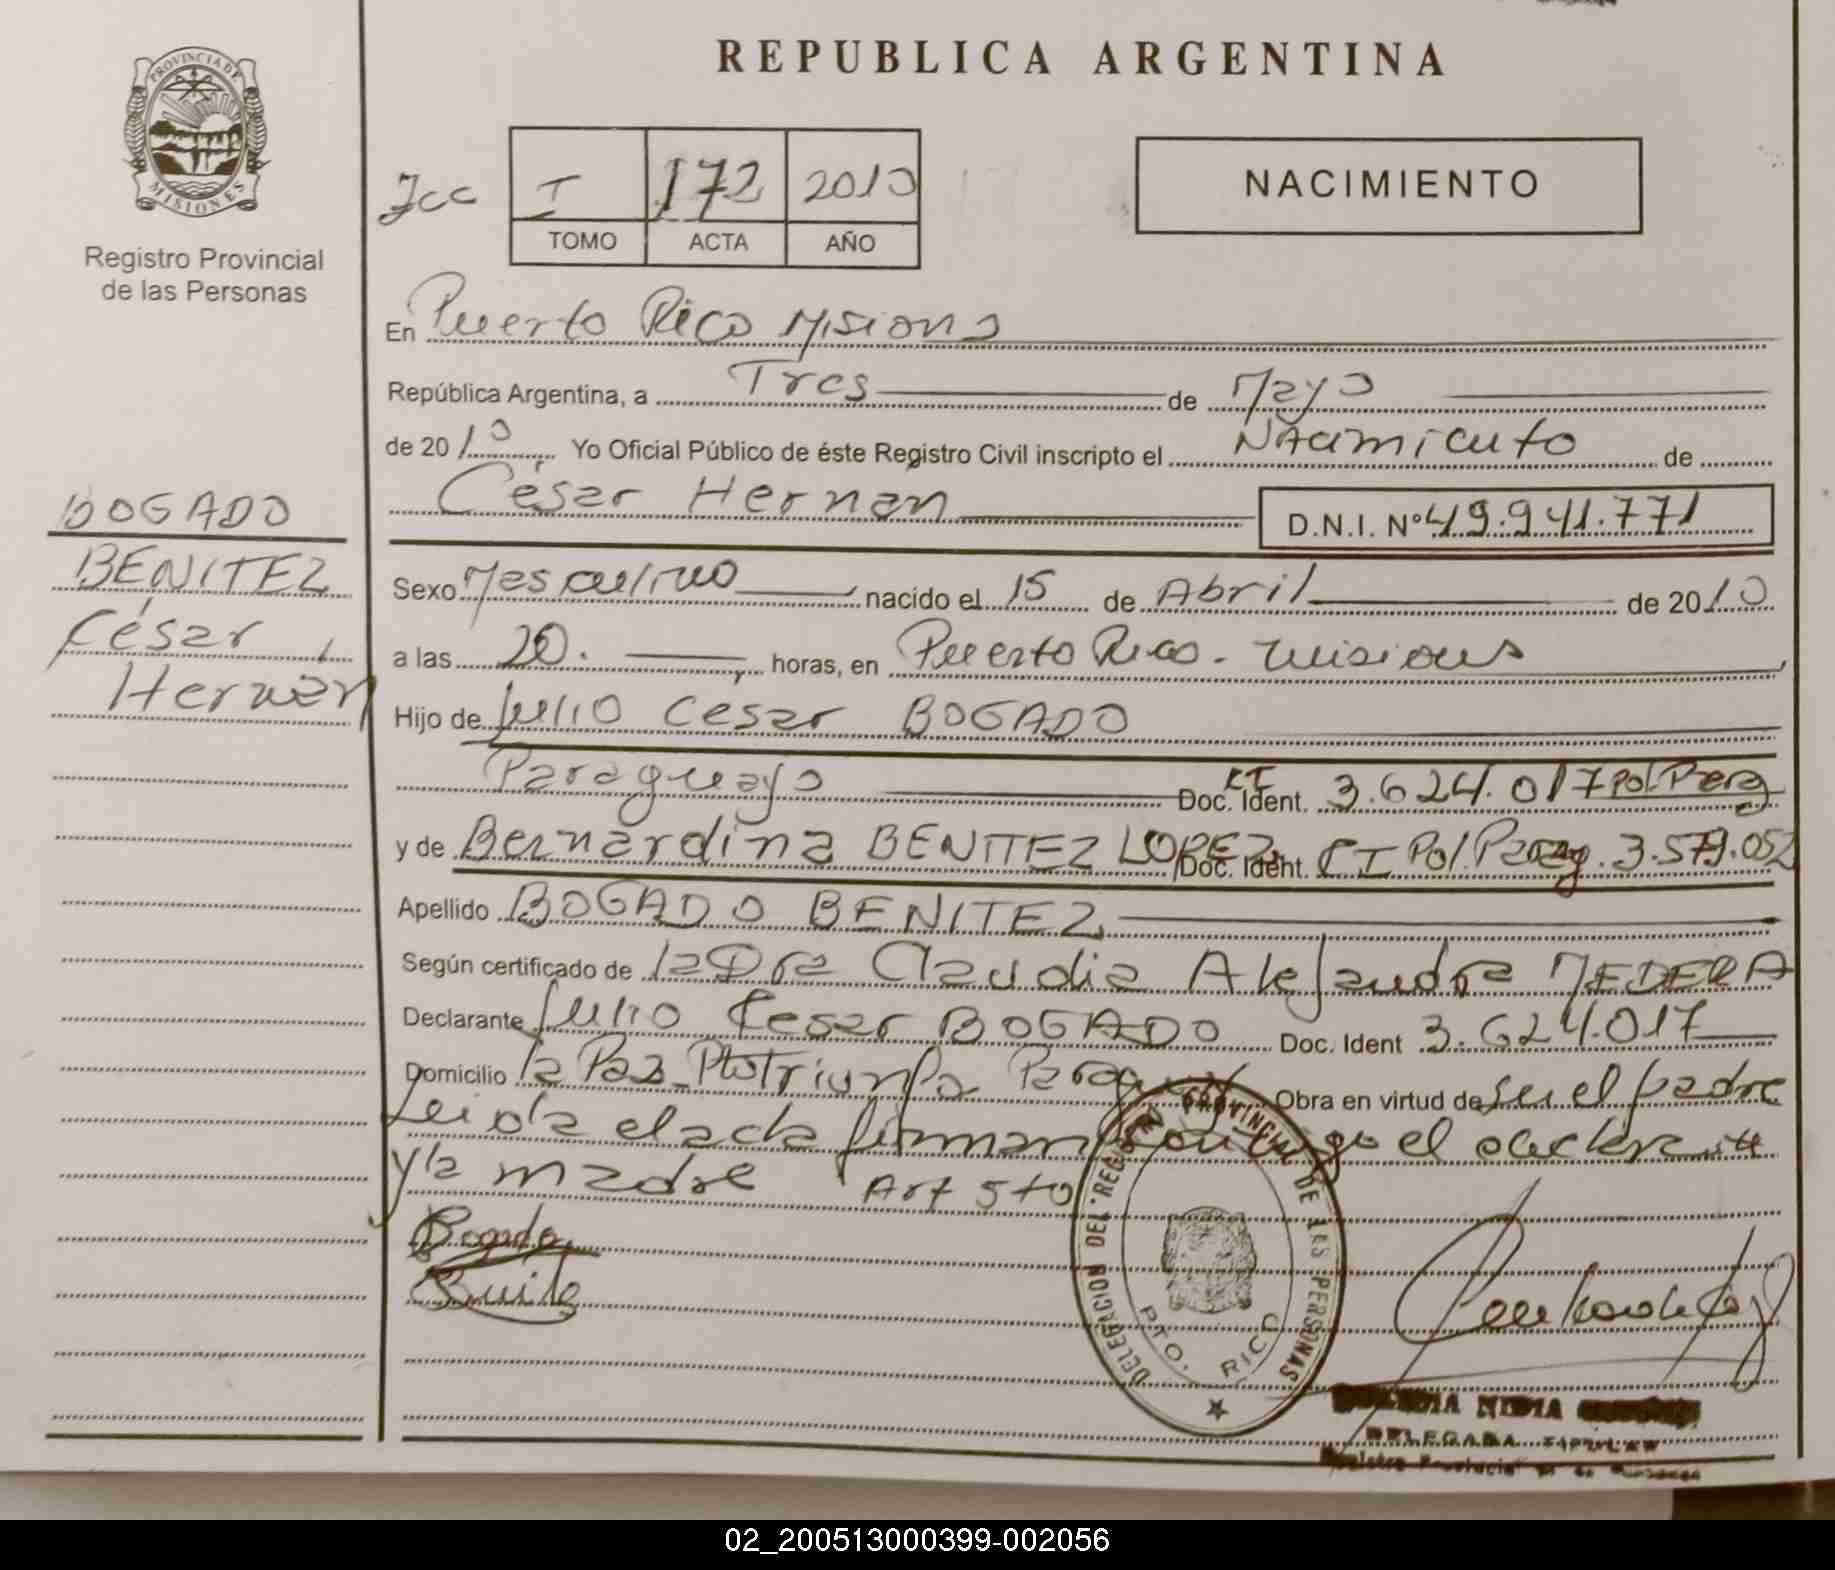 PROVINCIA DE
MISIONES
Registro Provincial
de las Personas
REPUBLICA ARGENTINA
I 172 2010
TOMO ACTA AÑO
NACIMIENTO
En Puerto Rico Misiones
República Argentina, a Tres de Mayo
de 2010 Yo Oficial Público de éste Registro Civil inscripto el Nacimiento de
César Hernan D.N.I. Nº 49.941.771
BOGADO
BENITEZ
César
Hernan
Sexo Masculino nacido el 15 de Abril de 2010
a las 20. horas, en Puerto Rico. Misiones
Hijo de Julio Cesar BOGADO
Paraguayo Doc. Ident. CI 3.624.017 Pol. Parag
y de Bernardina BENITEZ LOPEZ Doc. Ident. CI Pol. Parag. 3.579.052
Apellido BOGADO BENITEZ
Según certificado de la Dra Claudia Alejandra MEDERA
Declarante Julio Cesar BOGADO Doc. Ident 3.624.017
Domicilio la Paz Pto Triunfo Paraguay Obra en virtud de ser el padre
Leida el acta firman conmigo el declarante
y la madre Art 5to
Bogado
DELEGACION DEL REGISTRO PROVINCIAL DE LAS PERSONAS
PTO. RICO
NIDIA
DELEGADA TITULAR
Registro Provincial de las Personas
02_200513000399-002056